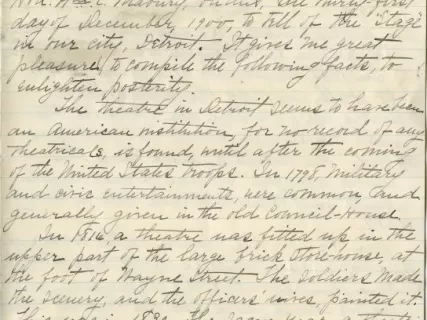 Hon. Wm. C. Maybury, on this, the thirty-first
day of December, 1900, to tell of the "Stage"
in our city, Detroit. It gives me great
pleasure, to compile the following facts, to
enlighten posterity.
The theatre, in Detroit seems to have been
an American institution, for no record of any
theatricals, is found, until after the coming
of the United States troops. In 1798, military
and civic entertainments, were common, and
generally given in the old Council-House.
In 1816, a theatre was fitted up in the
upper part of the large brick store-house, at
the foot of Wayne Street. The soldiers made
the scenery, and the officers wives, painted it.
The same was